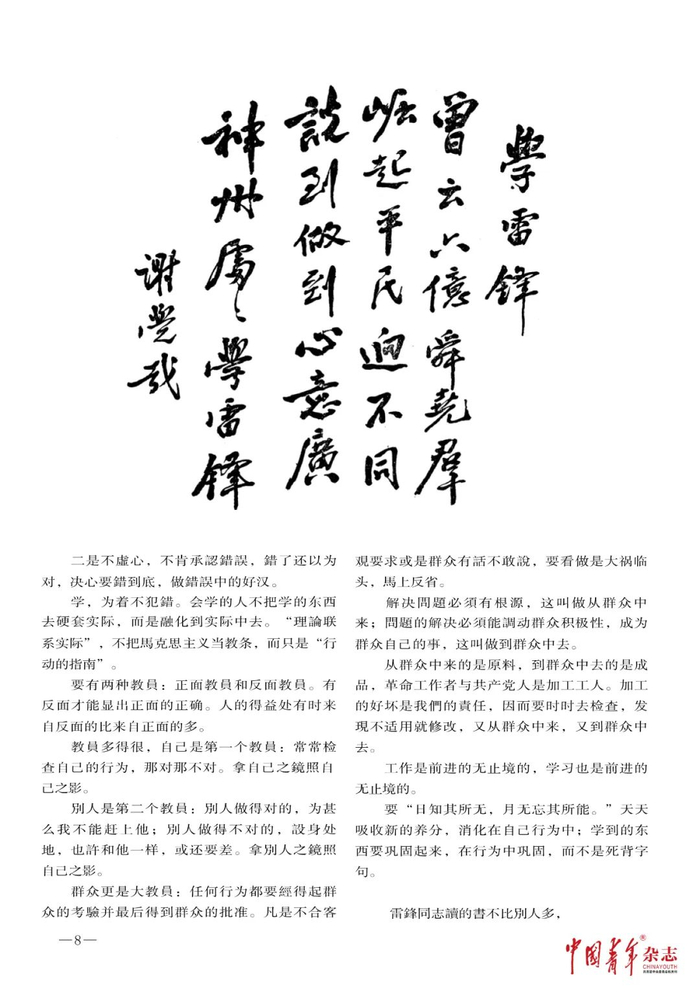 學雷鋒
曾云六億舜堯群
崛起平民迥不同
說到做到心意廣
神州處々學雷鋒
謝覺哉
二是不虚心，不肯承認錯誤，錯了还以为
对，决心要錯到底，做錯誤中的好汉。
学，为着不犯錯。会学的人不把学的东西
去硬套实际，而是融化到实际中去。“理論联
系实际”，不把馬克思主义当教条，而只是“行
动的指南”。
要有两种教員：正面教員和反面教員。有
反面才能显出正面的正确。人的得益处有时来
自反面的比来自正面的多。
教員多得很，自己是第一个教員：常常检
查自己的行为，那对那不对。拿自己之鏡照自
己之影。
別人是第二个教員：別人做得对的，为甚
么我不能赶上他；別人做得不对的，設身处
地，也許和他一样，或还要差。拿別人之鏡照
自己之影。
群众更是大教員：任何行为都要經得起群
众的考驗并最后得到群众的批准。凡是不合客
观要求或是群众有話不敢說，要看做是大祸临
头，馬上反省。
解决問題必須有根源，这叫做从群众中
来；問題的解决必須能調动群众积极性，成为
群众自己的事，这叫做到群众中去。
从群众中来的是原料，到群众中去的是成
品，革命工作者与共产党人是加工工人。加工
的好坏是我們的責任，因而要时时去检查，发
現不适用就修改，又从群众中来，又到群众中
去。
工作是前进的无止境的，学习也是前进的
无止境的。
要“日知其所无，月无忘其所能。”天天
吸收新的养分，消化在自己行为中；学到的东
西要巩固起来，在行为中巩固，而不是死背字
句。
雷鋒同志讀的書不比別人多，
—8—
中国青年®杂志
CHINAYOUTH